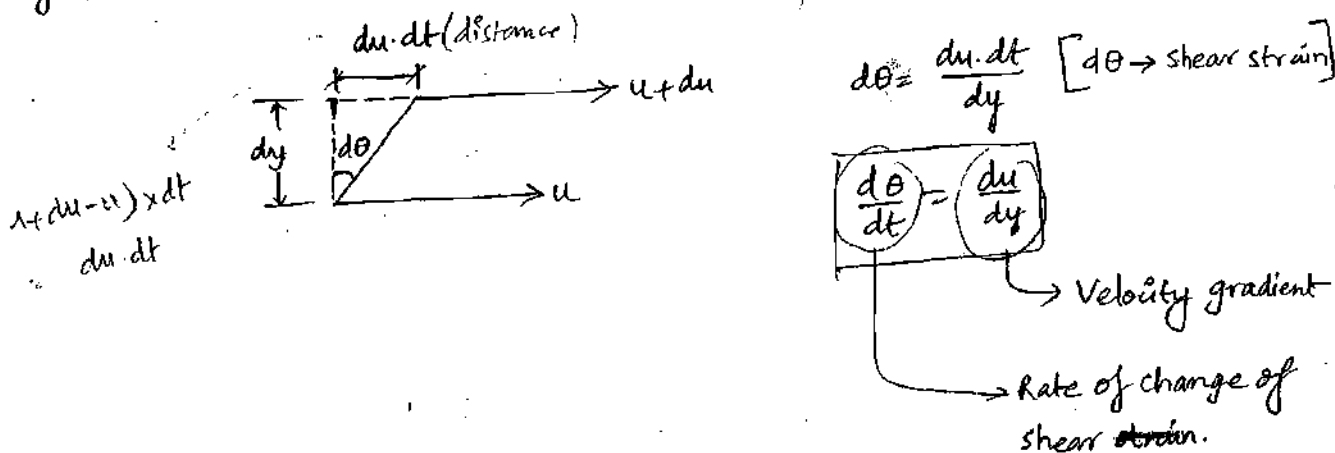 du.dt (distance)
u+du
dy
dθ
u
+du-u) x dt
du.dt
dθ = du.dt / dy [dθ → shear strain]
dθ/dt = du/dy
→ Velocity gradient
→ Rate of change of
shear strain.